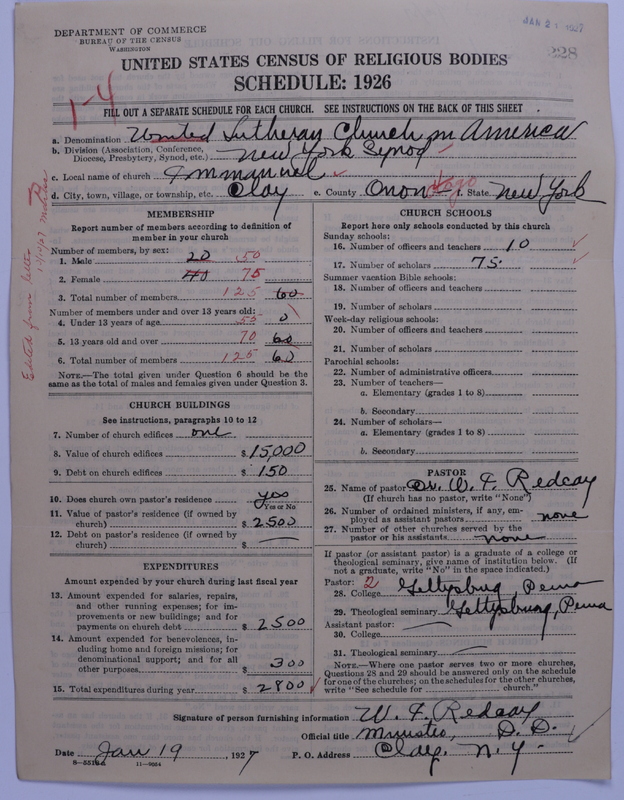 DEPARTMENT OF COMMERCE
BUREAU OF THE CENSUS
WASHINGTON
JAN 21 1927
228
UNITED STATES CENSUS OF RELIGIOUS BODIES
SCHEDULE: 1926
1-4
FILL OUT A SEPARATE SCHEDULE FOR EACH CHURCH. SEE INSTRUCTIONS ON THE BACK OF THIS SHEET
a. Denomination United Lutheran Church in America
b. Division (Association, Conference, Diocese, Presbytery, Synod, etc.) New York Synod
c. Local name of church Immanuel
d. City, town, village, or township, etc. Clay e. County Onondago f. State New York
MEMBERSHIP
Report number of members according to definition of member in your church
Number of members, by sex:
1. Male 20 50
2. Female 40 75
3. Total number of members 125 60
Number of members under and over 13 years old:
4. Under 13 years of age 55 0
5. 13 years old and over 70 60
6. Total number of members 125 60
NOTE.—The total given under Question 6 should be the same as the total of males and females given under Question 3.
CHURCH BUILDINGS
See instructions, paragraphs 10 to 12
7. Number of church edifices one
8. Value of church edifices $ 15,000
9. Debt on church edifices $ 150
10. Does church own pastor's residence yes
Yes or No
11. Value of pastor's residence (if owned by church) $ 2500
12. Debt on pastor's residence (if owned by church) $ —
EXPENDITURES
Amount expended by your church during last fiscal year
13. Amount expended for salaries, repairs, and other running expenses; for improvements or new buildings; and for payments on church debt $ 2500
14. Amount expended for benevolences, including home and foreign missions; for denominational support; and for all other purposes $ 300
15. Total expenditures during year $ 2800
CHURCH SCHOOLS
Report here only schools conducted by this church
Sunday schools:
16. Number of officers and teachers 10
17. Number of scholars 75
Summer vacation Bible schools:
18. Number of officers and teachers
19. Number of scholars
Week-day religious schools:
20. Number of officers and teachers
21. Number of scholars
Parochial schools:
22. Number of administrative officers
23. Number of teachers—
a. Elementary (grades 1 to 8)
b. Secondary
24. Number of scholars—
a. Elementary (grades 1 to 8)
b. Secondary
PASTOR
25. Name of pastor Dr. W. F. Redcay
(If church has no pastor, write "None")
26. Number of ordained ministers, if any, employed as assistant pastors none
27. Number of other churches served by the pastor or his assistants none
If pastor (or assistant pastor) is a graduate of a college or theological seminary, give name of institution below. (If not a graduate, write "No" in the space indicated.)
Pastor: 2
28. College Gettysburg, Penna
29. Theological seminary Gettysburg, Penna
Assistant pastor:
30. College —
31. Theological seminary —
NOTE.—Where one pastor serves two or more churches, Questions 28 and 29 should be answered only on the schedule for one of the churches; on the schedules for the other churches, write "See schedule for church."
Signature of person furnishing information W. F. Redcay
Official title Minister, D. D.
Date Jan 19, 1927 P. O. Address Clay. N. Y.
8-5516a 11-9054
Edited from letter